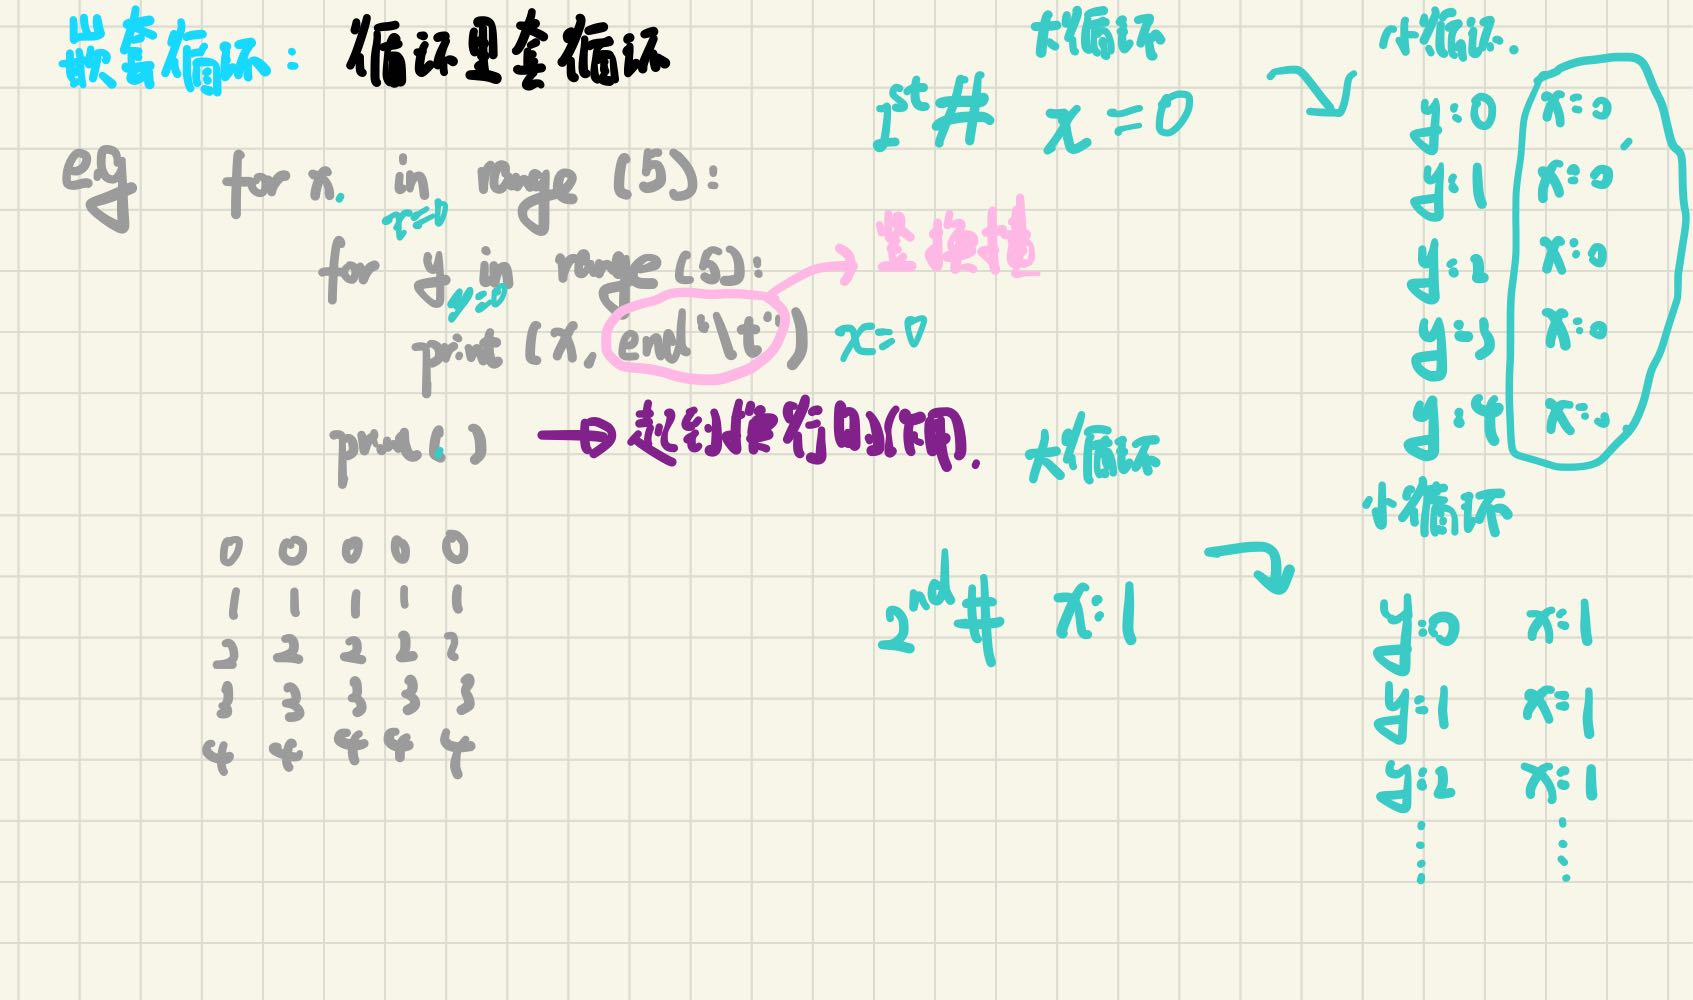 嵌套循环： 循环里套循环
eg for x in range (5):
x=0
for y in range (5):
y=0
print (x, end '\t') x=0
print( ) → 起到换行的作用.
0 0 0 0 0
1 1 1 1 1
2 2 2 2 2
3 3 3 3 3
4 4 4 4 4
大循环 小循环.
1st # x=0
y=0 x=0
y=1 x=0
y=2 x=0
y=3 x=0
y=4 x=0
大循环 小循环
2nd # x=1
y=0 x=1
y=1 x=1
y=2 x=1